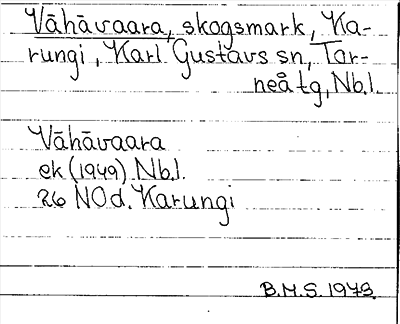 Vähävaara, skogsmark, Ka-
rungi, Karl Gustavs sn, Tor-
neå tg, Nb.l.
Vähävaara
ek (1949) Nb.l.
26 NO d. Karungi
B.M.S. 1973.